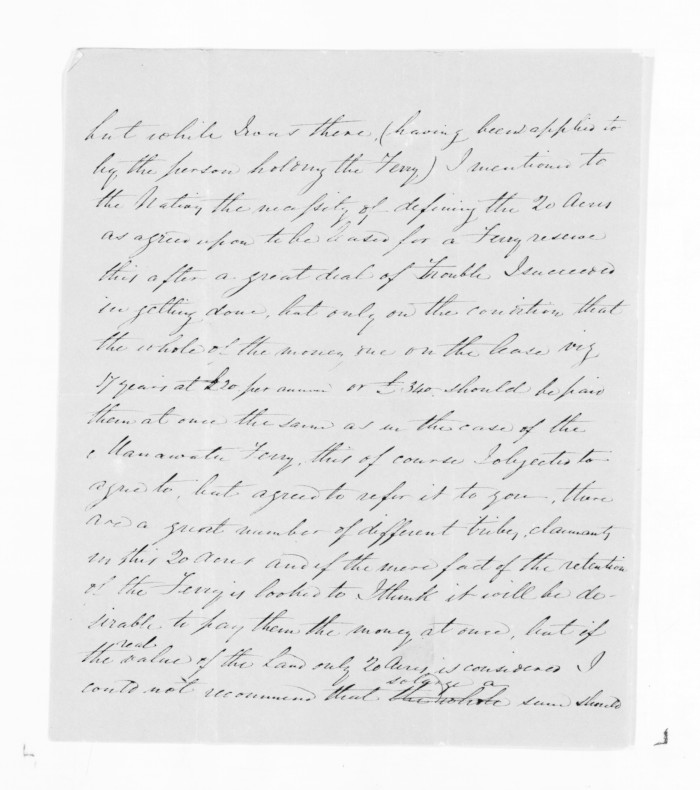 but while I was there, (having been applied to
by the person holding the Ferry,) I mentioned to
the Natives the necessity of defining the 20 Acres
as agreed upon to be leased for a Ferry reserve
this after a great deal of trouble I succeeded
in getting done, but only on the condition that
the whole of the money due on the lease viz
17 years at £20 per annum or £340. should be paid
them at once the same as in the case of the
Manawatu Ferry, this of course I objected to
agree to, but agreed to refer it to you, there
are a great number of different tribes, claimants
in this 20 Acres and if the mere fact of the retention
of the Ferry is looked to I think it will be de-
sirable to pay them the money at once, but if
the real value of the Land only 20 Acres, is considered I
could not recommend that the whole so large a sum should